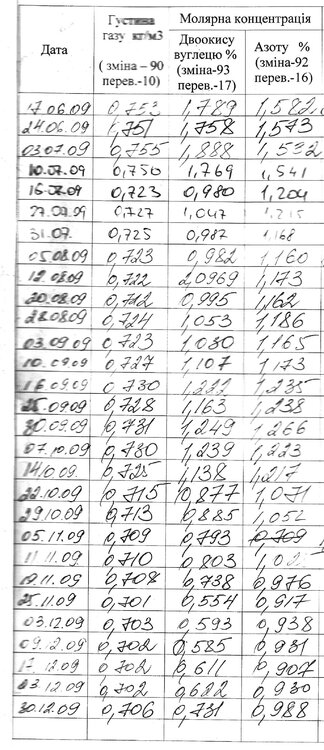 Дата Густина газу кг/м3 (зміна – 90 перев.-10) Молярна концентрація Двоокису вуглецю % (зміна-93 перев.-17) Азоту % (зміна-92 перев.-16)
17.06.09 0,753 1,789 1,582
24.06.09 1,751 1,758 1,573
03.07.09 0,755 1,888 1,532
10.07.09 0,750 1,769 1,541
16.07.09 0,723 0,980 1,204
27.07.09 0,727 1,047 1,215
31.07. 0,725 0,987 1,168
05.08.09 0,723 0,982 1,160
12.08.09 0,722 2,0969 1,173
20.08.09 0,712 0,995 1,162
28.08.09 0,724 1,053 1,186
03.09.09 0,723 1,080 1,165
10.09.09 0,727 1,107 1,173
16.09.09 0,730 1,222 1,235
25.09.09 0,728 1,163 1,238
30.09.09 0,731 1,249 1,266
07.10.09 0,730 1,239 1,223
14.10.09. 0,725 1,138 1,217
22.10.09 0,715 0,877 1,071
29.10.09 0,713 0,885 1,052
05.11.09 0,709 0,793 0,769
11.11.09 0,710 0,803 1,02
19.11.09 0,708 0,738 0,976
25.11.09 0,701 0,554 0,917
03.12.09 0,703 0,593 0,938
09.12.09 0,702 0,585 0,931
17.12.09 0,702 0,611 0,907
23.12.09 0,702 0,622 0,930
30.12.09 0,706 0,731 0,988